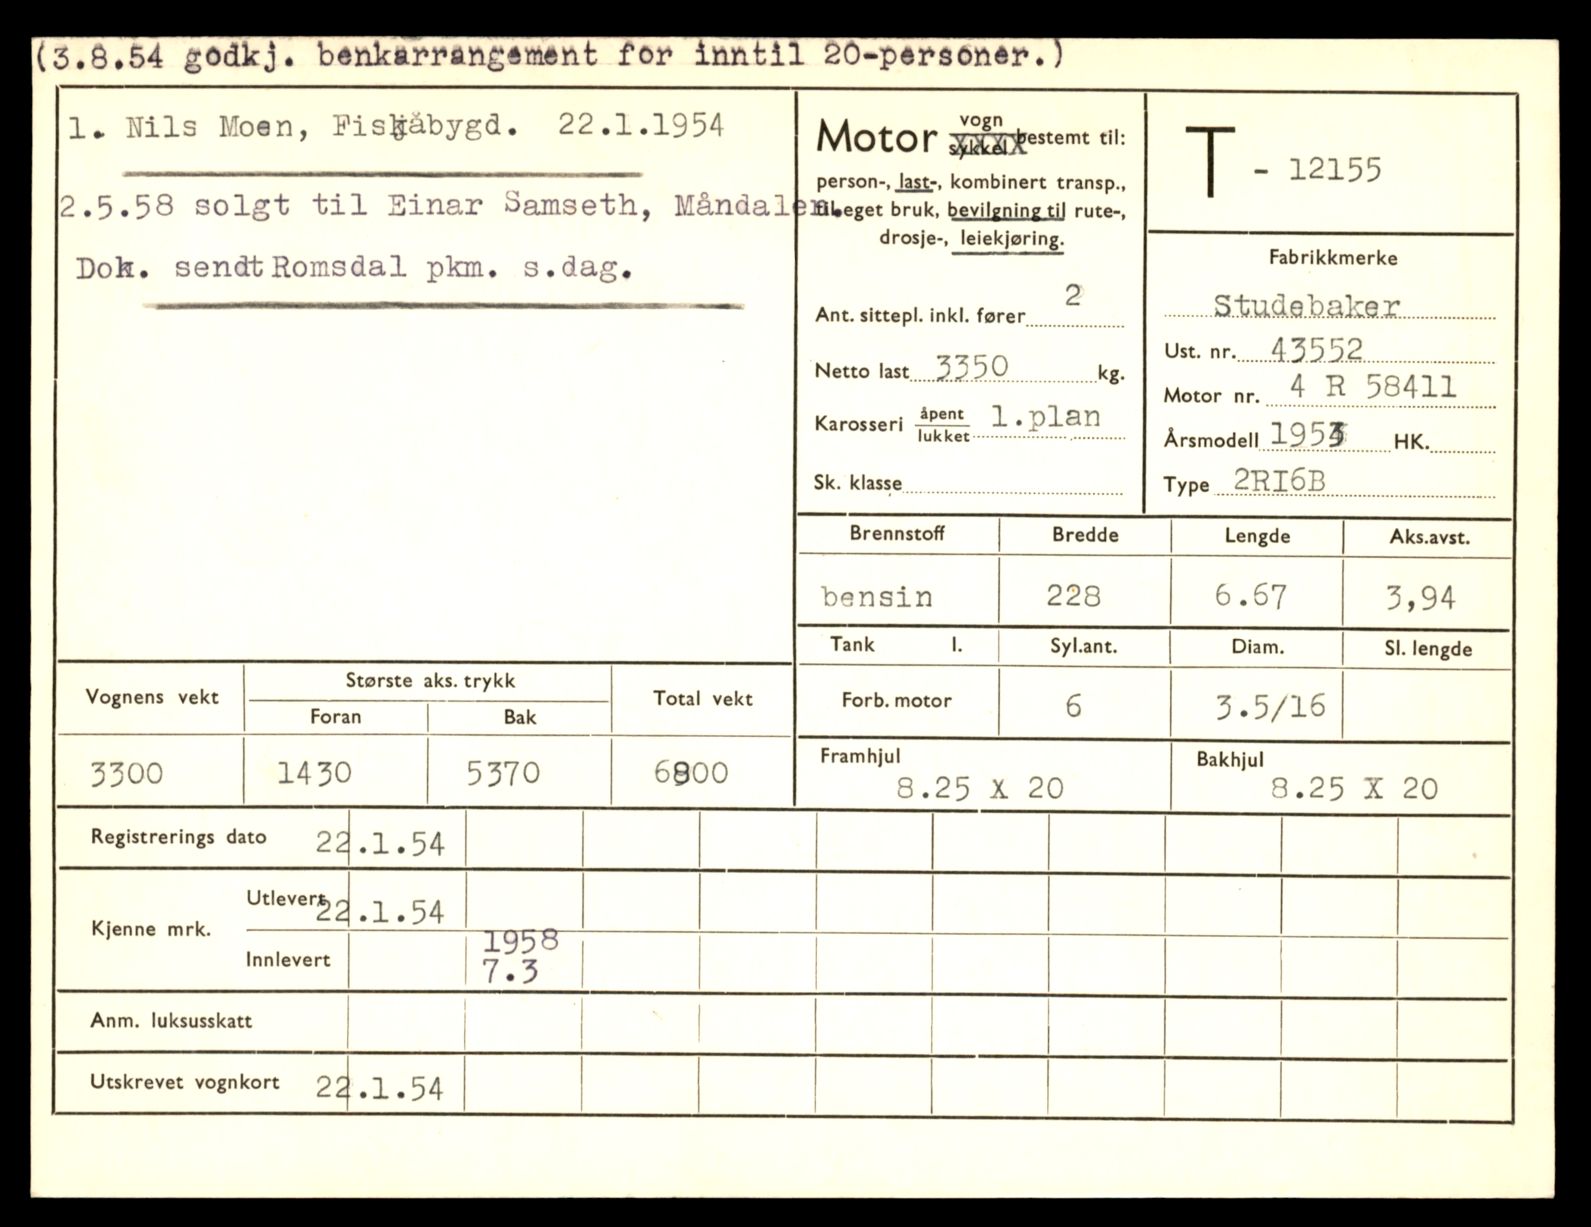 (3.8.54 godkj. benkarrangement for inntil 20-personer.)
1. Nils Moen, Fiskjåbygd. 22.1.1954
2.5.58 solgt til Einar Samseth, Måndalen.
Dok. sendt Romsdal pkm. s.dag.
Motor vogn sykkel bestemt til:
person-, last-, kombinert transp.,
til eget bruk, bevilgning til rute-,
drosje-, leiekjøring.
Ant. sittepl. inkl. fører 2
Netto last 3350 kg.
Karosseri åpent lukket l.plan
Sk. klasse
T - 12155
Fabrikkmerke
Studebaker
Ust. nr. 43552
Motor nr. 4 R 58411
Årsmodell 1953 HK.
Type 2RI6B
Brennstoff Bredde Lengde Aks.avst.
bensin 228 6.67 3,94
Tank l. Syl.ant. Diam. Sl. lengde
Forb. motor 6 3.5/16
Framhjul Bakhjul
8.25 X 20 8.25 X 20
Vognens vekt Største aks. trykk Total vekt
Foran Bak
3300 1430 5370 6800
Registrerings dato 22.1.54
Kjenne mrk. Utlevert 22.1.54
Innlevert 1958
7.3
Anm. luksusskatt
Utskrevet vognkort 22.1.54